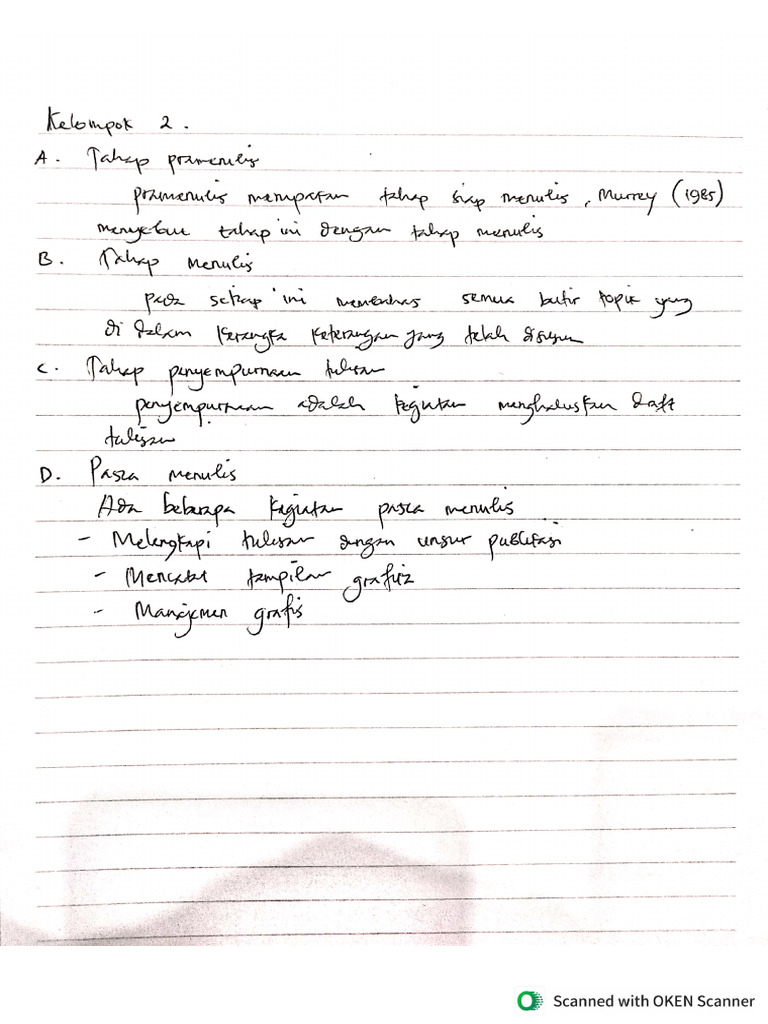 Kelompok 2.
A. Tahap pramenulis
pramenulis merupakan tahap siap menulis, Murrey (1985)
menyebut tahap ini dengan tahap menulis
B. Tahap menulis
pada setiap ini membahas semua butir topik yang
di dalam kerangka keterangan yang telah disusun
C. Tahap penyempurnaan tulisan
penyempurnaan adalah kegiatan menghaluskan draft
tulisan
D. Pasca menulis
Ada beberapa kegiatan pasca menulis
- Melengkapi tulisan dengan unsur publikasi
- tampilan
- Manajemen grafis
Scanned with OKEN Scanner